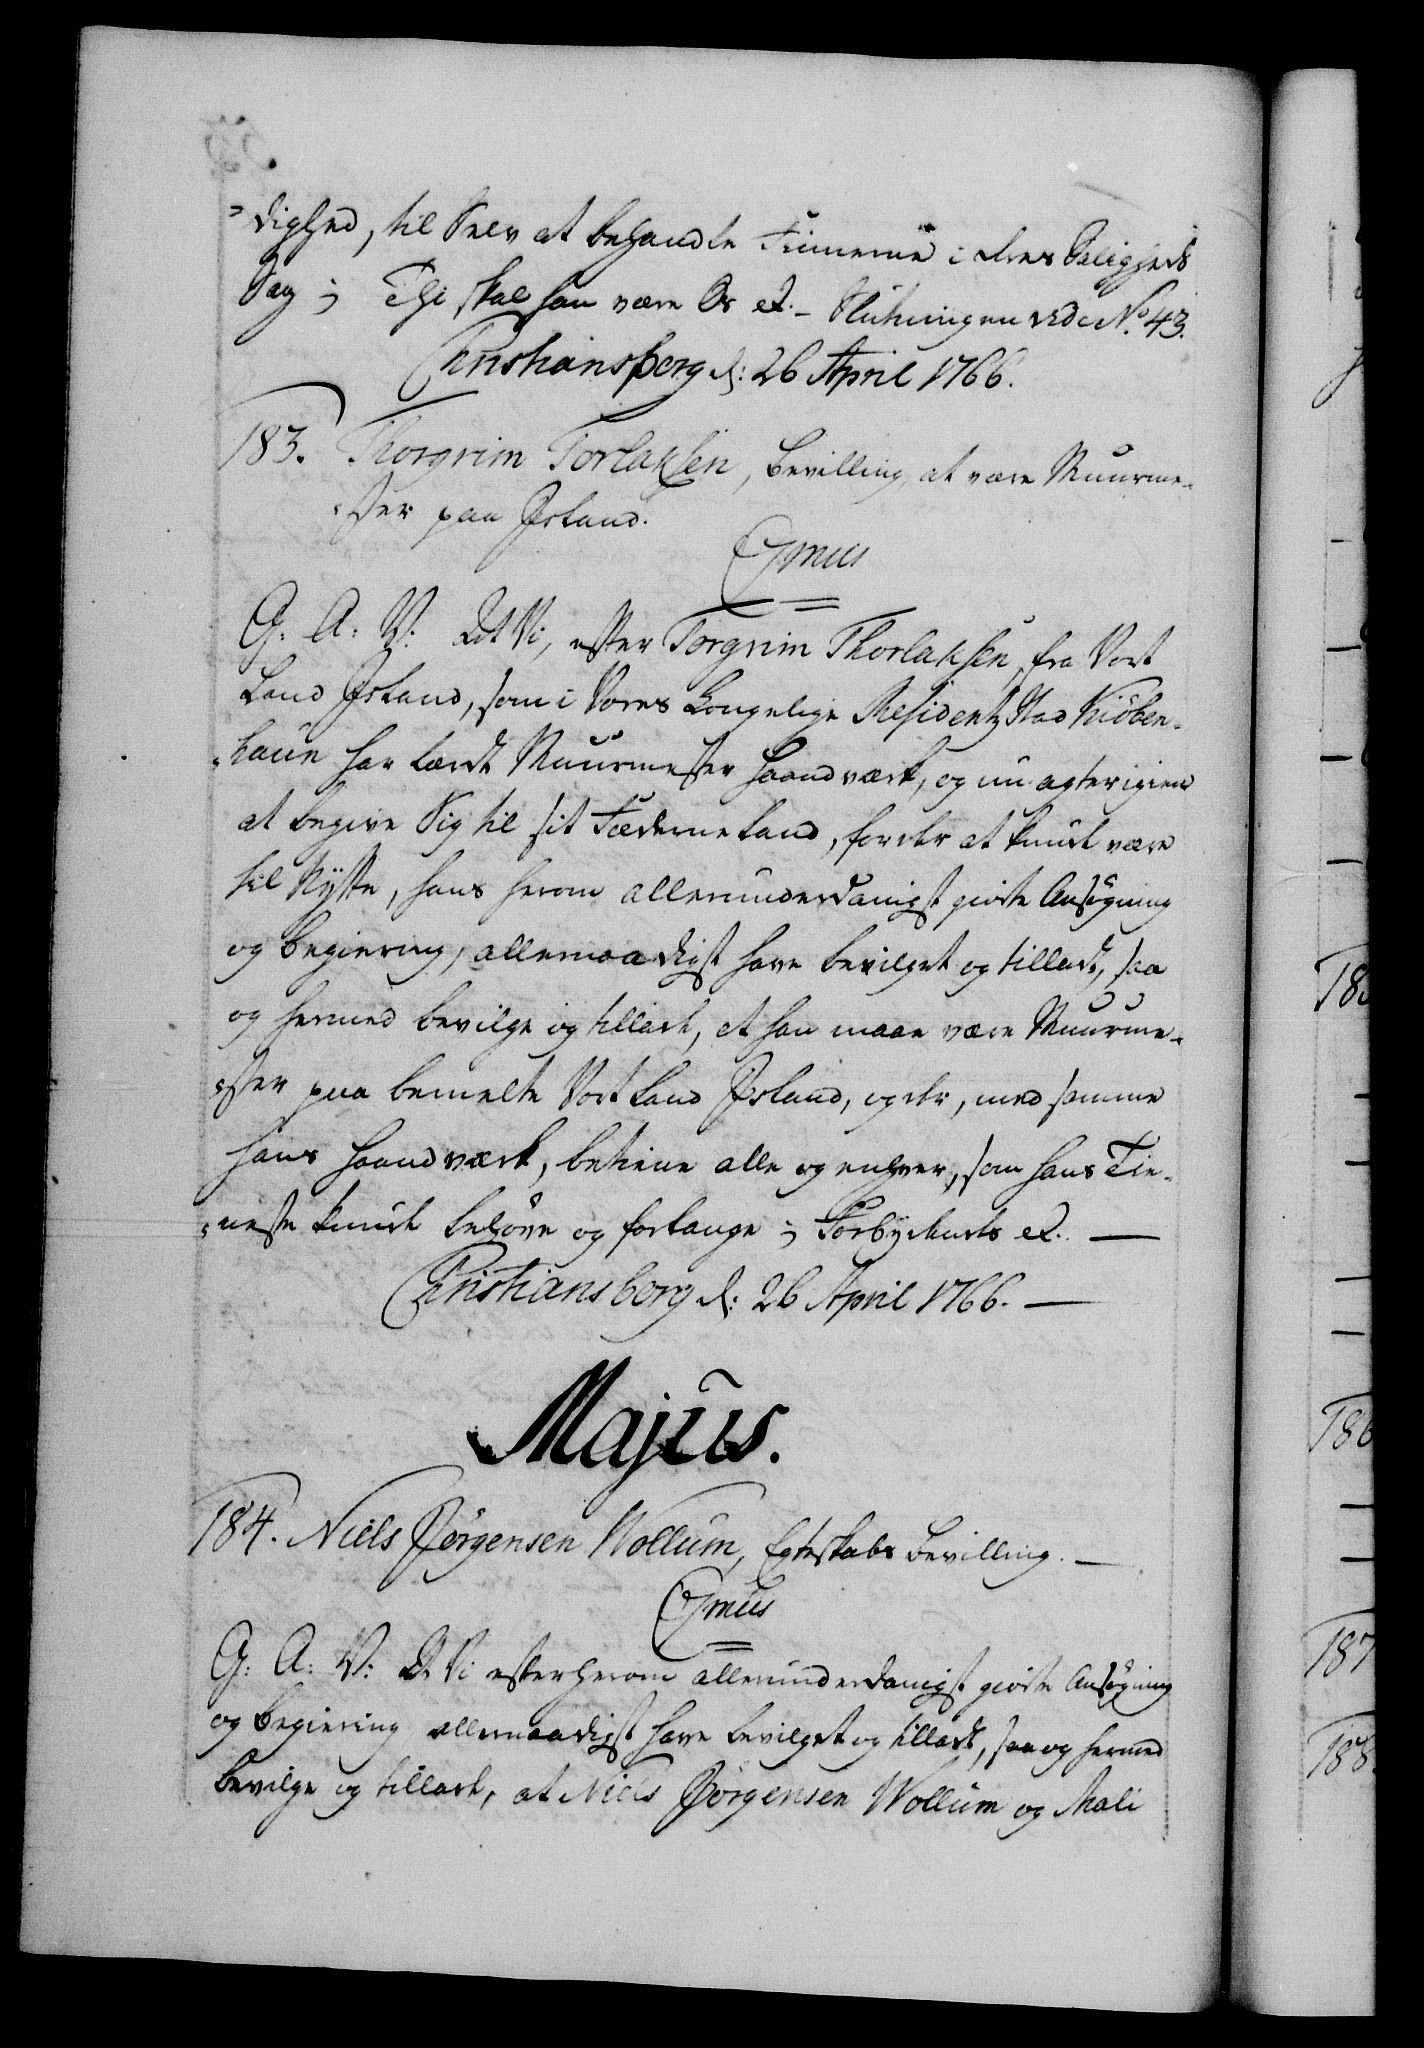 dighed, til Selv at behandle Finnerne i deres Saligheds
Sag; Thi skal han være Os et. Slutningen vide No. 43.
Christiansborg d: 26 April 1766.
183. Thorgrim Torlaksen, Bevilling, at være Muurme-
ster paa Island.
Cⅴmus
G: A: V: At Vi, efter Torgrim Thorlaksen, fra Vort
Land Island, som i Vores Kongelige Residentz Stad Kiöben-
haun har lærdt Muurmester Haandværk, og nu agter igien
at begive Sig til sit Fæderne Land, for der at kunde være
til Nytte, hans herom allerunderdanigst giorte Ansögning
og Begiering, allernaadigst have bevilget og tilladt, saa
og hermed bevilge og tillade, at han maae være Muurme-
ster paa bemelte Vort Land Island, og der, med samme
hans Haandværk, betiene alle og enhver, som hans Tie-
neste kunde behöve og forlange; Forbydendes et.
Christiansborg d: 26 April 1766.
Majus.
184. Niels Jörgensen Wollum, Egteskabs Bevilling.
G: A: V: At Vi efter herom allerunderdanigst giorte Ansögning
og Begiering allernaadigst have bevilget og tilladt, saa og hermed
bevilge og tillade, at Niels Jörgensen Wollum og Mali
183
186
187
188.